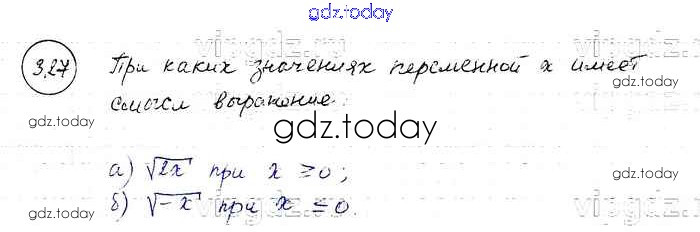 gdz.today
3.27 При каких значениях переменной x имеет
смысл выражение:
gdz.today
gdz.today
gdz.today
а) √2x при x ≥ 0;
б) √-x при x ≤ 0.
gdz.today
gdz.today